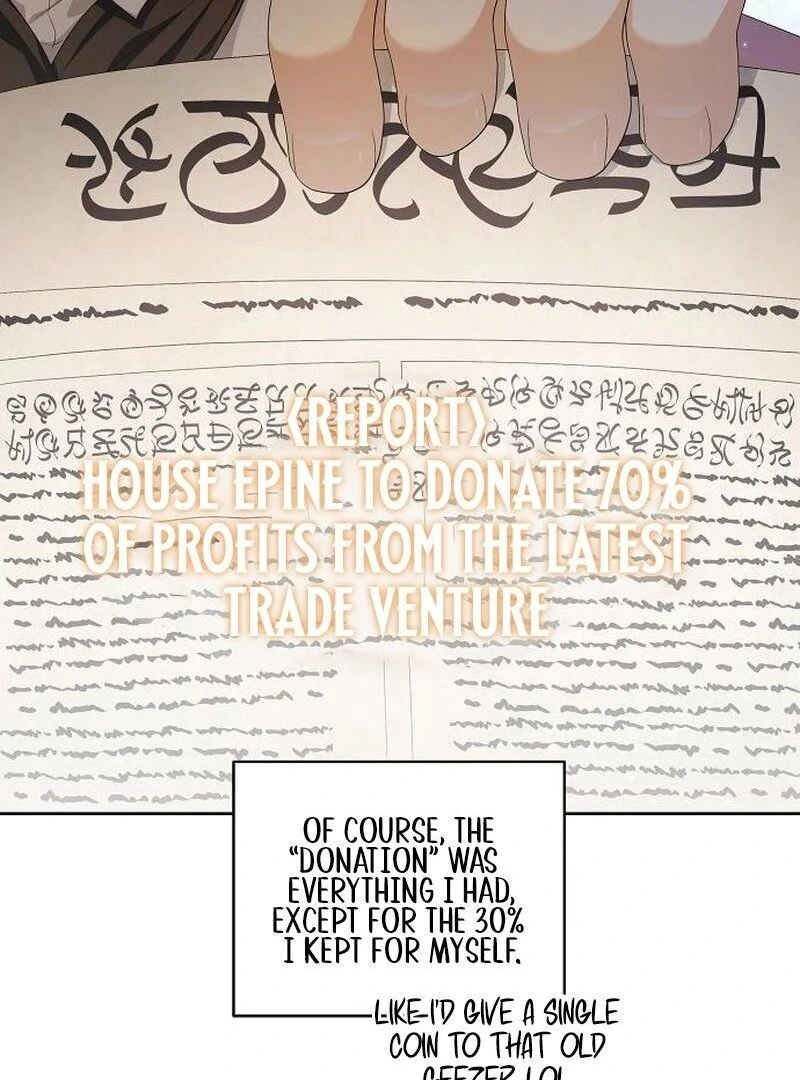 <REPORT>
HOUSE EPINE TO DONATE 70%
OF PROFITS FROM THE LATEST
TRADE VENTURE
OF COURSE, THE
"DONATION" WAS
EVERYTHING I HAD,
EXCEPT FOR THE 30%
I KEPT FOR MYSELF.
LIKE I'D GIVE A SINGLE
COIN TO THAT OLD
GEEZER LOL